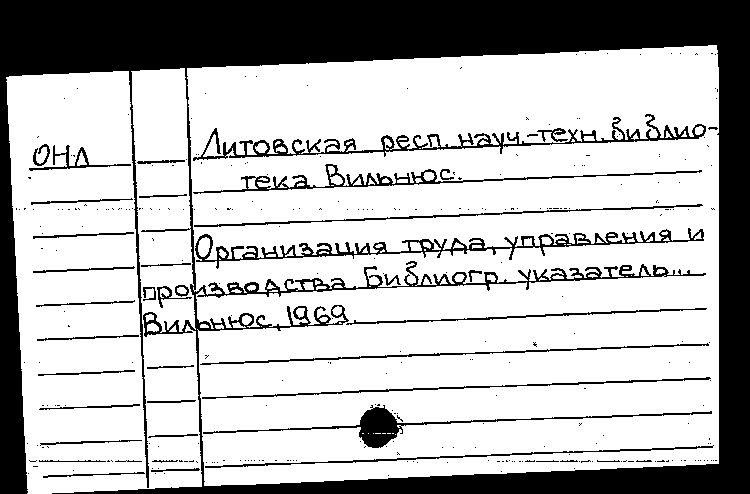 ОНЛ
Литовская респ. науч.-техн. библио-
тека. Вильнюс.
Организация труда, управления и
производства. Библиогр. указатель...
Вильнюс, 1969.